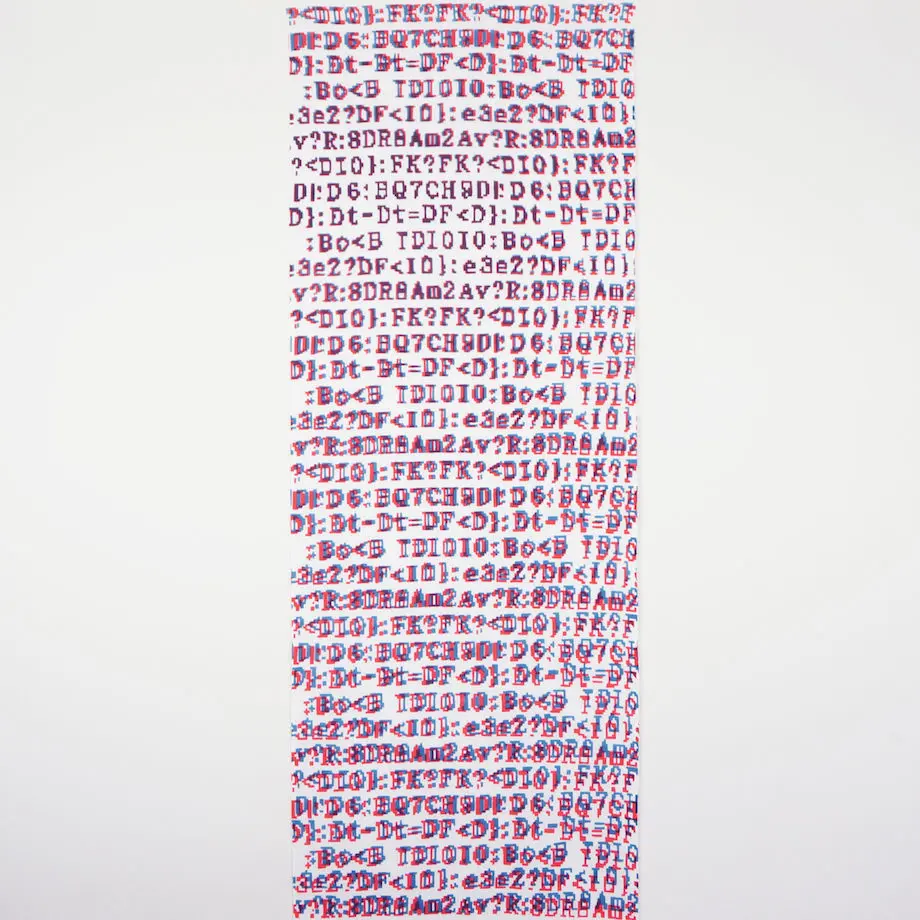 ?<DI0}:FK?FK?<DI0}:FK?F
D!:D6:BQ7CH9D!:D6:BQ7CH
D}:Dt-Dt=DF<D}:Dt-Dt=DF
:Bo<B IDI0I0:Bo<B IDI0
e3e2?DF<I0}:e3e2?DF<I0}
v?R:8DR8Am2Av?R:8DR8Am2
?<DI0}:FK?FK?<DI0}:FK?F
D!:D6:BQ7CH9D!:D6:BQ7CH
D}:Dt-Dt=DF<D}:Dt-Dt=DF
:Bo<B IDI0I0:Bo<B IDI0
e3e2?DF<I0}:e3e2?DF<I0}
v?R:8DR8Am2Av?R:8DR8Am2
?<DI0}:FK?FK?<DI0}:FK?F
D!:D6:BQ7CH9D!:D6:BQ7CH
D}:Dt-Dt=DF<D}:Dt-Dt=DF
:Bo<B IDI0I0:Bo<B IDI0
e3e2?DF<I0}:e3e2?DF<I0}
v?R:8DR8Am2Av?R:8DR8Am2
?<DI0}:FK?FK?<DI0}:FK?F
D!:D6:BQ7CH9D!:D6:BQ7CH
D}:Dt-Dt=DF<D}:Dt-Dt=DF
:Bo<B IDI0I0:Bo<B IDI0
e3e2?DF<I0}:e3e2?DF<I0}
v?R:8DR8Am2Av?R:8DR8Am2
?<DI0}:FK?FK?<DI0}:FK?F
D!:D6:BQ7CH9D!:D6:BQ7CH
D}:Dt-Dt=DF<D}:Dt-Dt=DF
:Bo<B IDI0I0:Bo<B IDI0
e3e2?DF<I0}:e3e2?DF<I0}
v?R:8DR8Am2Av?R:8DR8Am2
?<DI0}:FK?FK?<DI0}:FK?F
D!:D6:BQ7CH9D!:D6:BQ7CH
D}:Dt-Dt=DF<D}:Dt-Dt=DF
:Bo<B IDI0I0:Bo<B IDI0
e3e2?DF<I0}:e3e2?DF<I0}
v?R:8DR8Am2Av?R:8DR8Am2